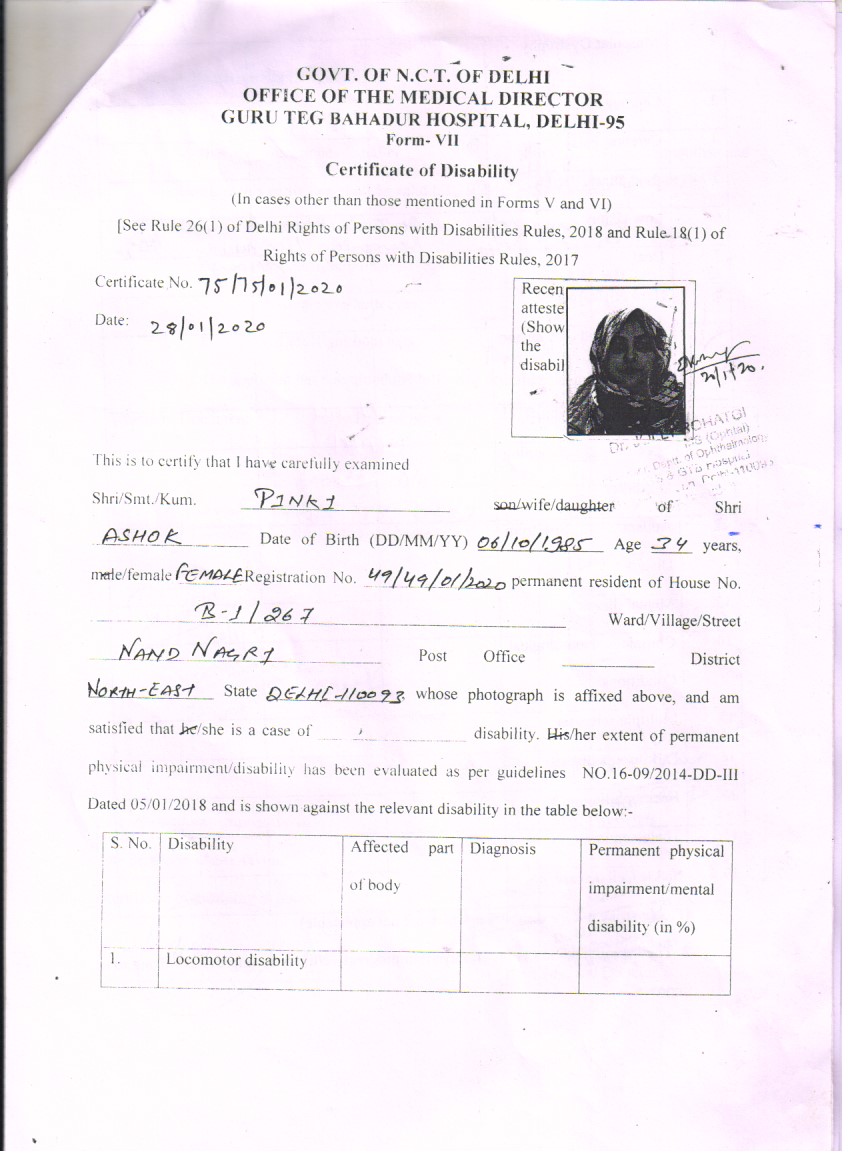 GOVT. OF N.C.T. OF DELHI
OFFICE OF THE MEDICAL DIRECTOR
GURU TEG BAHADUR HOSPITAL, DELHI-95
Form- VII
Certificate of Disability
(In cases other than those mentioned in Forms V and VI)
[See Rule 26(1) of Delhi Rights of Persons with Disabilities Rules, 2018 and Rule 18(1) of
Rights of Persons with Disabilities Rules, 2017
Certificate No. 75/75/01/2020
Date: 28/01/2020
Recen
atteste
(Show
the
disabil
(Ophthal)
Deptt. of Ophthalmology
GTB Hospital
Delhi-110095
This is to certify that I have carefully examined
Shri/Smt./Kum. PINKI son/wife/daughter of Shri
ASHOK Date of Birth (DD/MM/YY) 06/10/1985 Age 34 years,
male/female FEMALE Registration No. 49/49/01/2020 permanent resident of House No.
B-1/267 Ward/Village/Street
NAND NAGRI Post Office District
NORTH-EAST State DELHI-110093, whose photograph is affixed above, and am
satisfied that he/she is a case of disability. His/her extent of permanent
physical impairment/disability has been evaluated as per guidelines NO.16-09/2014-DD-III
Dated 05/01/2018 and is shown against the relevant disability in the table below:-
S. No. Disability Affected part of body Diagnosis Permanent physical impairment/mental disability (in %)
1. Locomotor disability